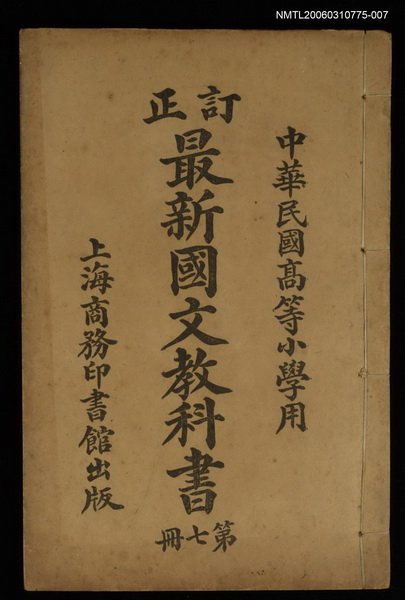 NMTL20060310775-007
中華民國高等小學用
訂正
最新國文教科書
第七冊
上海商務印書館出版